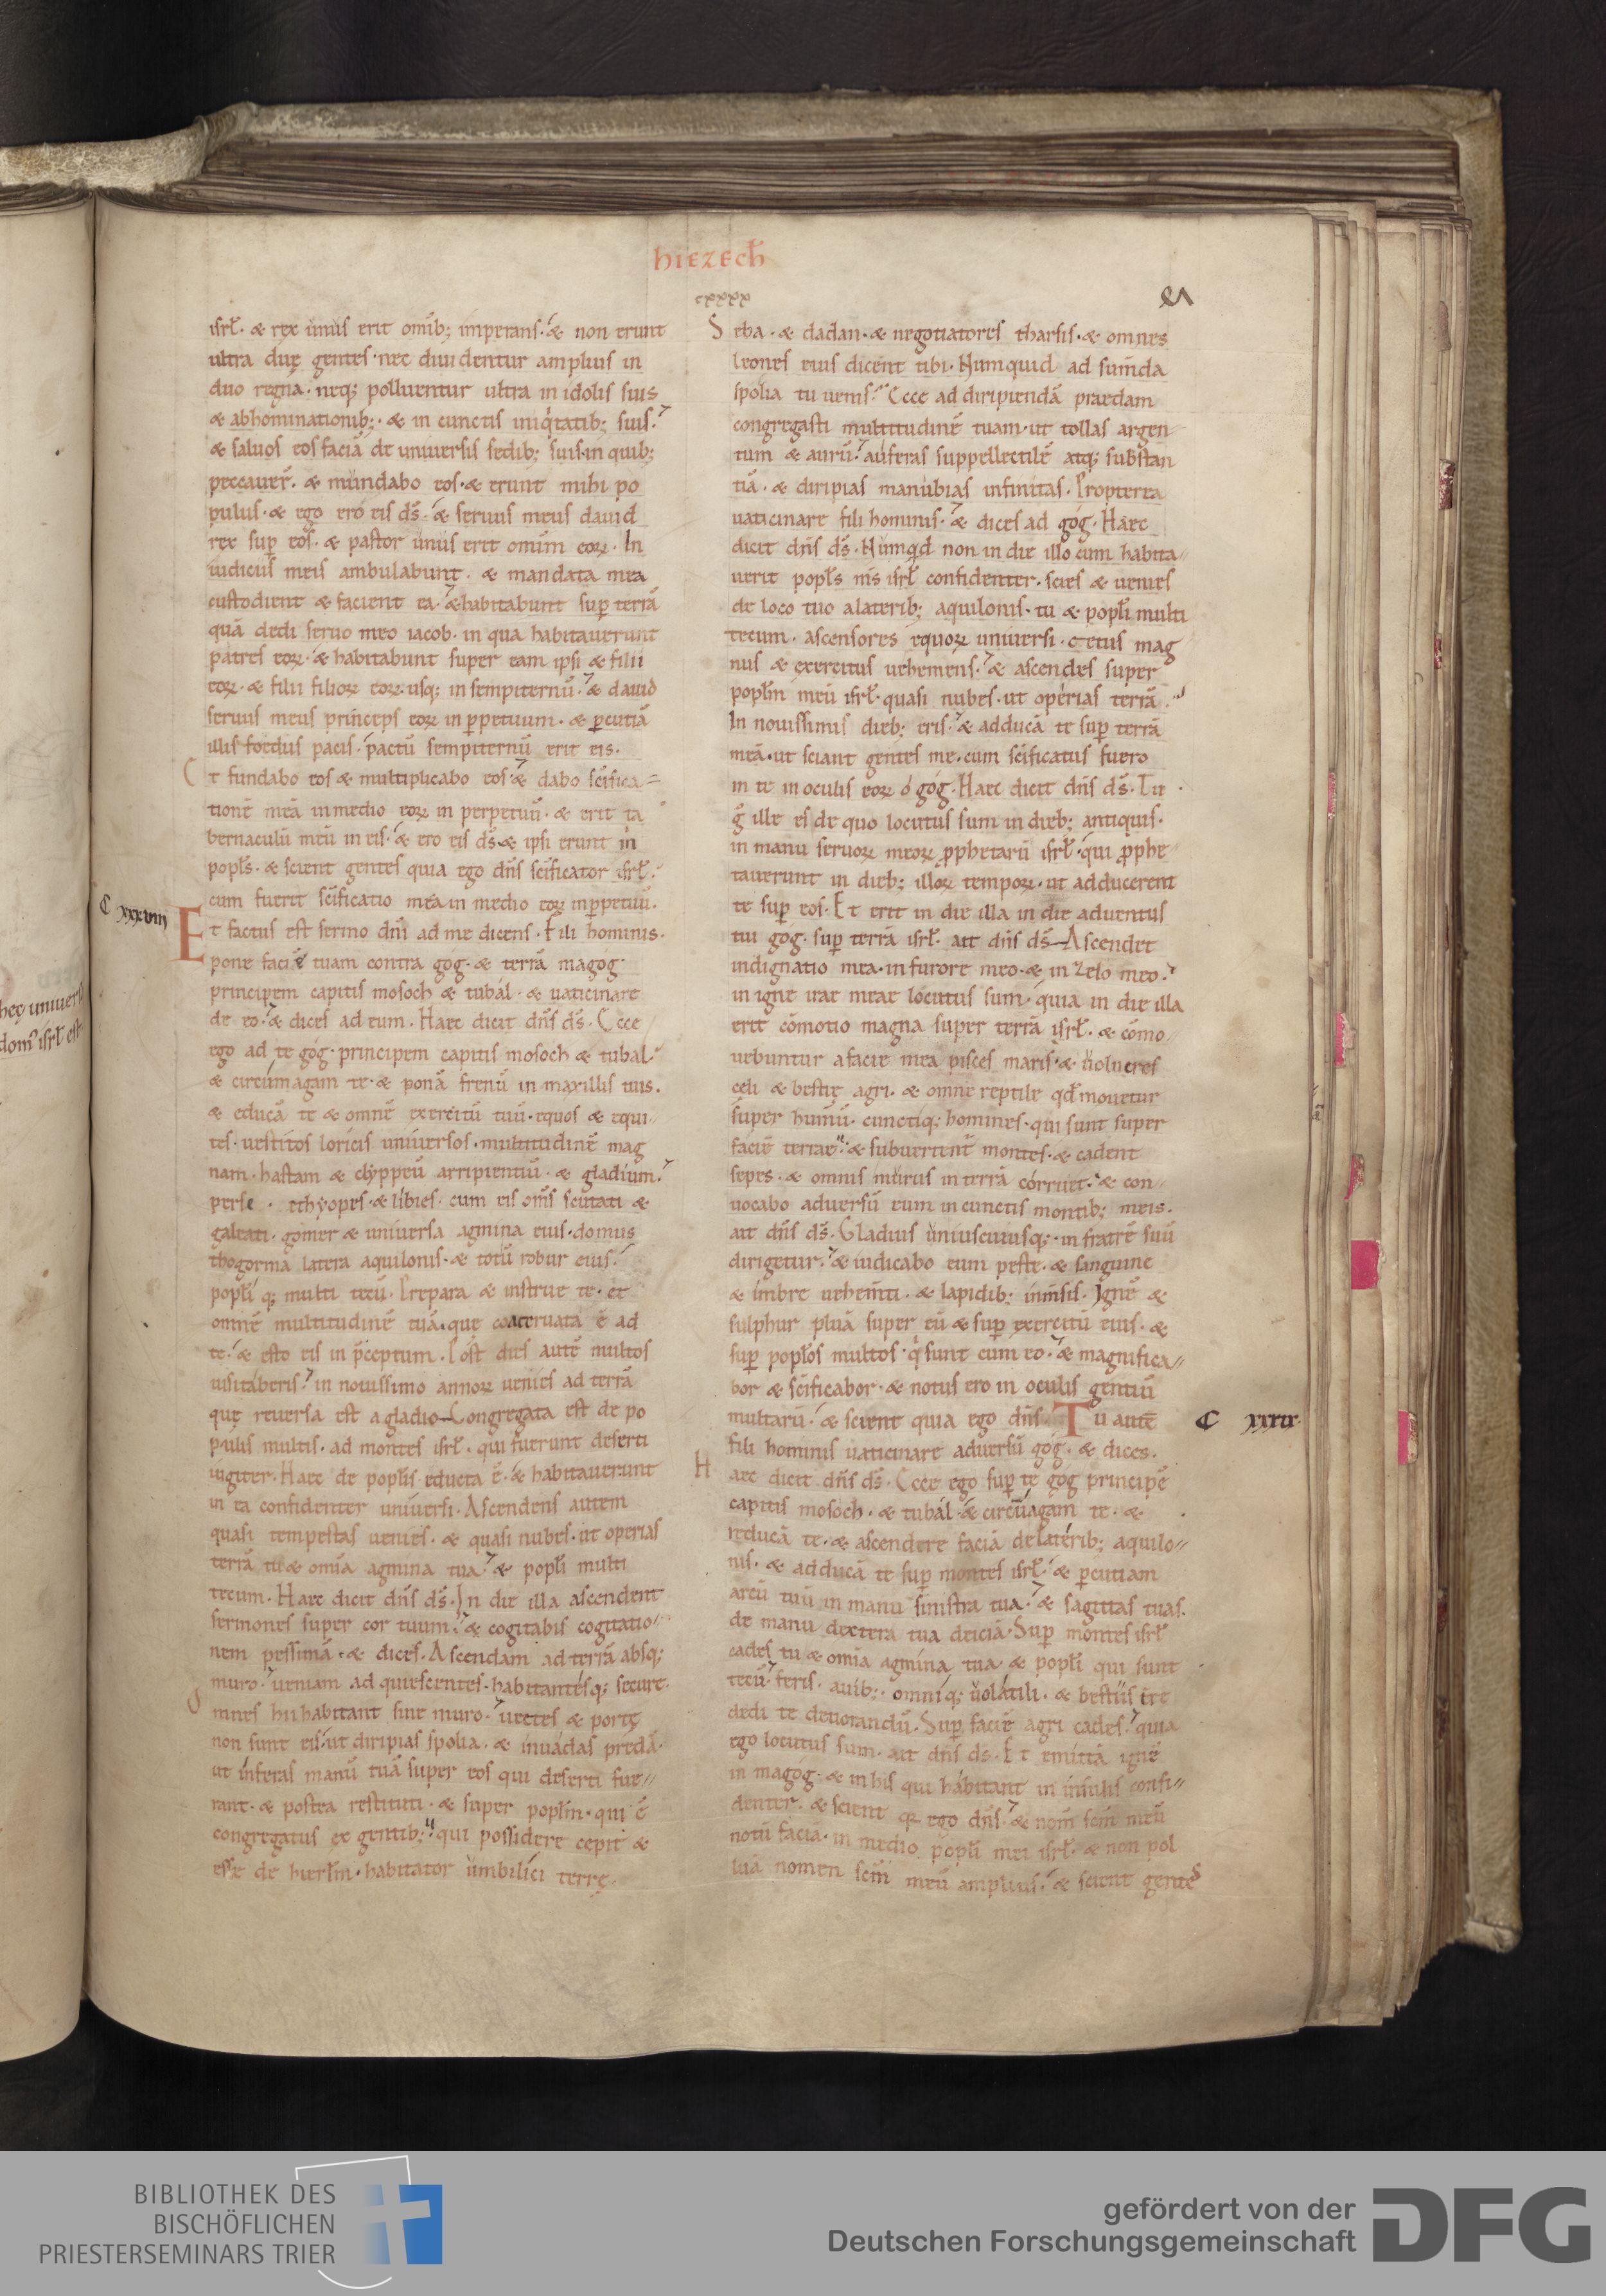 hiezech̄
cxxxx
isrł. & rex unus erit omīb; imperans. & non erunt
ultra duę gentes. nec diuidentur amplius in
duo regna. neq; polluentur ultra in idolis suis
& abhominationib;. & in cunctis iniq̇tatib; suis.
& saluos eos faciā de uniuersis sedib; suis. in quib;
peccauer̄. & mundabo eos. & erunt mihi po
pulus. & ego ero eis ds̄. & seruus meus dauid
rex sup̄ eos. & pastor unus erit omīm eoꝝ. In
iudiciis meis ambulabunt. & mandata mea
custodient & facient ea. & habitabunt sup̄ terrā
quā dedi seruo meo iacob. in qua habitauerunt
patres eoꝝ. & habitabunt super eam ipsi & filii
eoꝝ. & filii filioꝝ eoꝝ. usq; in sempiternū. & dauid
seruus meus princeps eoꝝ in ꝑpetuum. & ꝑcutiā
illis foedus pacis. pactū sempiternū erit eis.
Et fundabo eos & multiplicabo eos. & dabo sc̄ifica
tionē meā in medio eoꝝ in perpetuū. & erit ta
bernaculū meū in eis. & ero eis ds̄. & ipsi erunt m̄
popłs. & scient gentes quia ego dn̄s sc̄ificator isrł.
cum fuerit sc̄ificatio mea in medio eoꝝ in ꝑpetuū.
C xxxviii
Et factus est sermo dn̄i ad me dicens. Fili hominis.
pone faciē tuam contra gog. & terrā magog.
principem capitis mosoch & tubal. & uaticinare
de eo. & dices ad eum. Haec dicit dn̄s ds̄. Ecce
ego ad te gog. principem capitis mosoch & tubal.
& circūmagam te. & ponā frenū in maxillis tuis.
& educā te & omnē exercitū tuū. equos & equi
tes. uestitos loricis uniuersos. multitudinē mag
nam. hastam & clyppeū arripientiū. & gladium.
perse. ethyopes. & libies. cum eis om̄s scutati &
galeati. gomer & uniuersa agmina eius. domus
thogorma latera aquilonis. & totū robur eius.
popłi q; multi tecū. Prepara & instrue te. et
omnē multitudinē tuā. que coaceruata ē ad
te. & esto eis in p̄ceptum. Post dies autē multos
uisitaberis. in nouissimo annoꝝ uenies ad terrā
quę reuersa est a gladio. Congregata est de po
pulis multis. ad montes isrł. qui fuerunt deserti
iugiter. Haec de popłis educta ē. & habitauerunt
in ea confidenter uniuersi. Ascendens autem
quasi tempestas uenies. & quasi nubes. ut operias
terrā tu & omīa agmina tua. & popłi multi
tecum. Haec dicit dn̄s ds̄. In die illa ascendent
sermones super cor tuum. & cogitabis cogitatio
nem pessimā. & dices. Ascendam ad terrā absq;
muro. ueniam ad quiescentes. habitantesq; secure.
Omnes hii habitant sine muro. uectes & portę
non sunt eis. ut diripias spolia. & inuadas predā.
ut inferas manū tuā super eos qui deserti fue
rant. & postea restituti. & super popłm. qui ē
congregatus ex gentib;. qui possidere cepit &
esse de hierłm. habitator umbilici terrę.
Seba. & dadan. & negotiatores tharsis. & omnes
leones eius dicent tibi. Numquid ad sum̄da
spolia tu uenis. Ecce ad diripiendā praedam
congregasti multitudinē tuam. ut tollas argen
tum & aurū. auferas suppellectilē atq; substan
tiā. & diripias manubias infinitas. Propterea
uaticinare fili hominis. & dices ad gog. Haec
dicit dn̄s ds̄. Numq̇d non in die illo cum habita
uerit popłs m̄s isrł confidenter. scies & uenies
de loco tuo a laterib; aquilonis. tu & popłi multi
tecum. ascensores equoꝝ uniuersi. cetus mag
nus & exercitus uehemens. & ascendes super
popłm meū isrł. quasi nubes. ut operias terrā.
In nouissimis dieb; eris. & adducā te sup̄ terrā
meā. ut sciant gentes me. cum sc̄ificatus fuero
in te in oculis eoꝝ o gog. Haec dicit dn̄s ds̄. Tu
g̊ ille es de quo locutus sum in dieb; antiquis.
in manu seruoꝝ meoꝝ ꝓphetarū isrł. qui ꝓphe
tauerunt in dieb; illoꝝ tempoꝝ. ut adducerem
te sup̄ eos. Et erit in die illa in die aduentus
tui gog. sup̄ terrā isrł. ait dn̄s ds̄. Ascendet
indignatio mea. in furore meo. & in zelo meo.
in igne irae meae locutus sum. quia in die illa
erit cōmotio magna super terrā isrł. & cōmo
uebuntur a facie mea pisces maris. & uolucres
celi & bestię agri. & omne reptile qd̄ mouetur
super humū. cunctiq; homines. qui sunt super
faciē terrae. & subuertent̄ montes. & cadent
sepes. & omnis murus in terrā corruet. & con
uocabo aduersū eum in cunctis montib; meis.
ait dn̄s ds̄. Gladius uniuscuiusq; in fratrē suū
dirigetur. & iudicabo eum peste. & sanguine
& imbre uehem̄ti. & lapidib; inm̄sis. Ignē &
sulphur pluā super eū & sup̄ exercitū eius. &
sup̄ popłos multos. q̇ sunt cum eo. & magnifica
bor & sc̄ificabor. & notus ero in oculis gentiū
multarū. & scient quia ego dn̄s. Tu autē
C xxxix
fili hominis uaticinare aduersū gog. & dices.
Haec dicit dn̄s ds̄. Ecce ego sup̄ te gog principē
capitis mosoch. & tubal. & circūagam te. &
reducā te. & ascendere faciā de laterib; aquilo
nis. & adducā te sup̄ montes isrł. & ꝑcutiam
arcū tuū in manu sinistra tua. & sagittas tuas.
de manu dextera tua deiciā. Sup̄ montes isrł
cades tu & omīa agmina tua. & popłi qui sunt
tecū. feris. auib;. omniq; uolatili. & bestiis tr̄e
dedi te deuorandū. Sup̄ faciē agri cades. quia
ego locutus sum. ait dn̄s ds̄. Et emittā ignē
in magog. & in his qui habitant in insulis confi
denter. & scient q̄ ego dn̄s. & nom̄ sc̄m meū
notū faciā. in medio popłi mei isrł. & non pol
luā nomen sc̄m meū amplius. & scient gentes
BIBLIOTHEK DES
BISCHÖFLICHEN
PRIESTERSEMINARS TRIER
gefördert von der
Deutschen Forschungsgemeinschaft
DFG